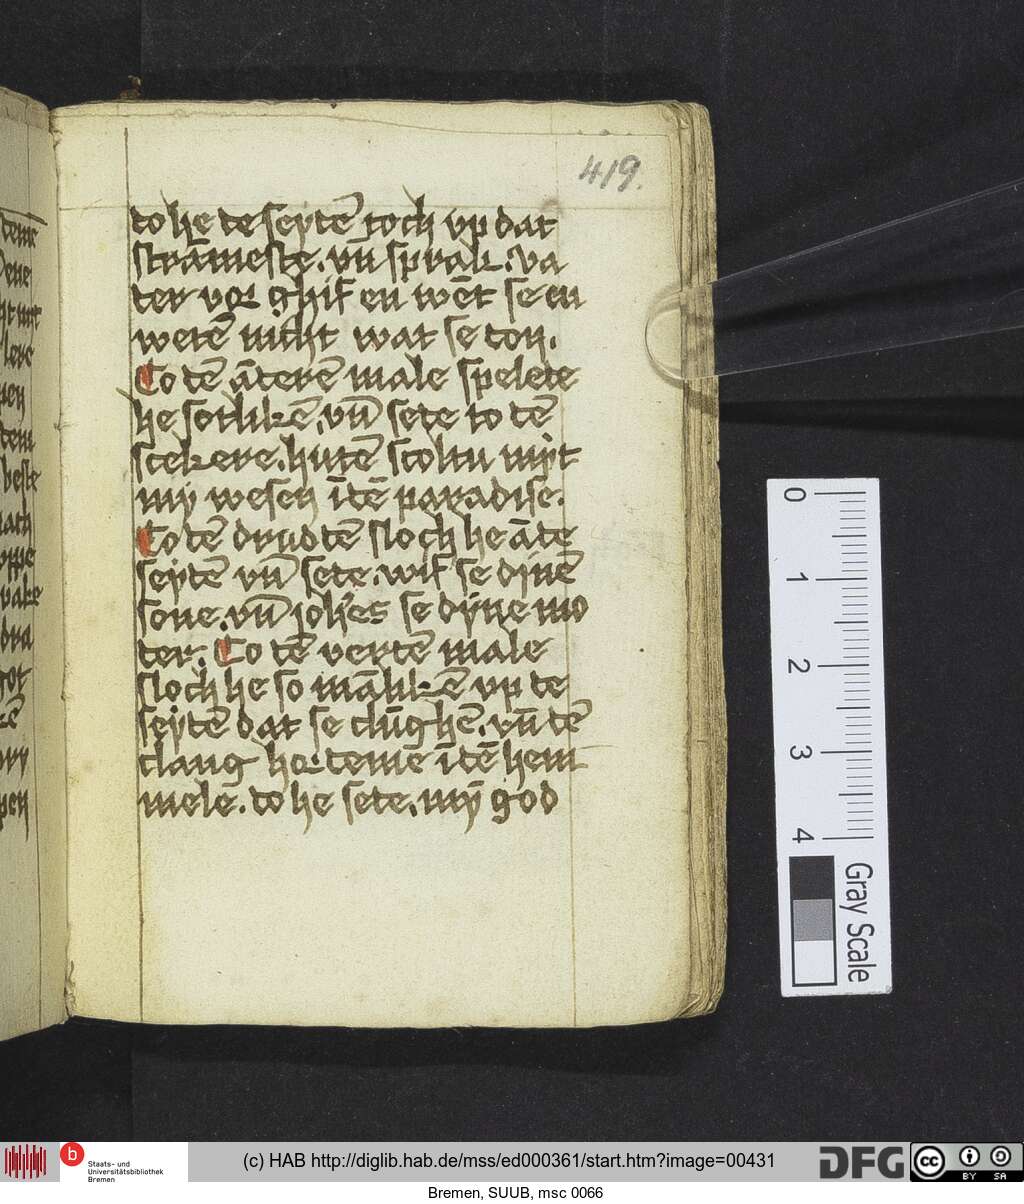 419.
to he te seytē toch vp dat
strāmeste. vn̄ sprak. va
ter vor ghif en wēt se en
wetē nicht wat se don.
To tē āterē male spelete
he sotlikē, vn̄ sete to tē
scekere. hutē scoltu myt
my wesen ītē paradise.
To tē drudtē sloch he āte
seytē vn̄ sete. wif se dynē
sone. vn̄ iohēs se dyne mo
ter. To tē vertē male
sloch he so mālikē vp te
seytē dat se clūghē. vn̄ tē
clang horteme ītē hem
mele. to he sete. my god
0
1
2
3
4
Gray Scale
Staats- und
Universitätsbibliothek
Bremen
(c) HAB http://diglib.hab.de/mss/ed000361/start.htm?image=00431
DFG
cc BY SA
Bremen, SUUB, msc 0066